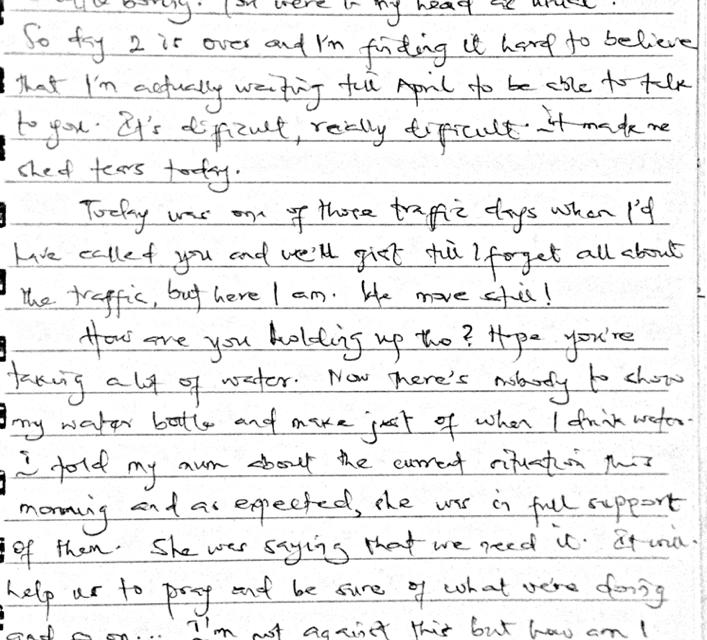 boring. You were in my head as usual.
So day 2 is over and I'm finding it hard to believe
that I'm actually waiting till April to be able to talk
to you. It's difficult, really difficult. It made me
shed tears today.
Today was one of those traffic days when I'd
have called you and we'll gist till I forget all about
the traffic, but here I am. We move still!
How are you holding up tho? Hope you're
taking a lot of water. Now there's nobody to show
my water bottle and make jest of when I drink water.
I told my mum about the current situation this
morning and as expected, she was in full support
of them. She was saying that we need it. It will
help us to pray and be sure of what we're doing
and so on... I'm not against this but how can I